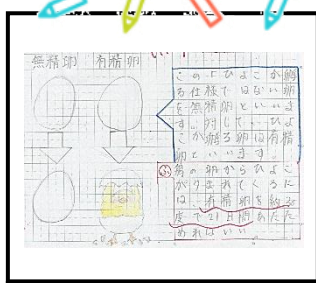 無精卵 有精卵
このようにひよこが
る仕様ではない卵
を無精卵といいま
す。対して、ひよ
こが孵る卵は有精
卵といいます。
の卵からひよこ
がうまれてくるに
は、有精卵を約
度で21日間あたた
めればいい